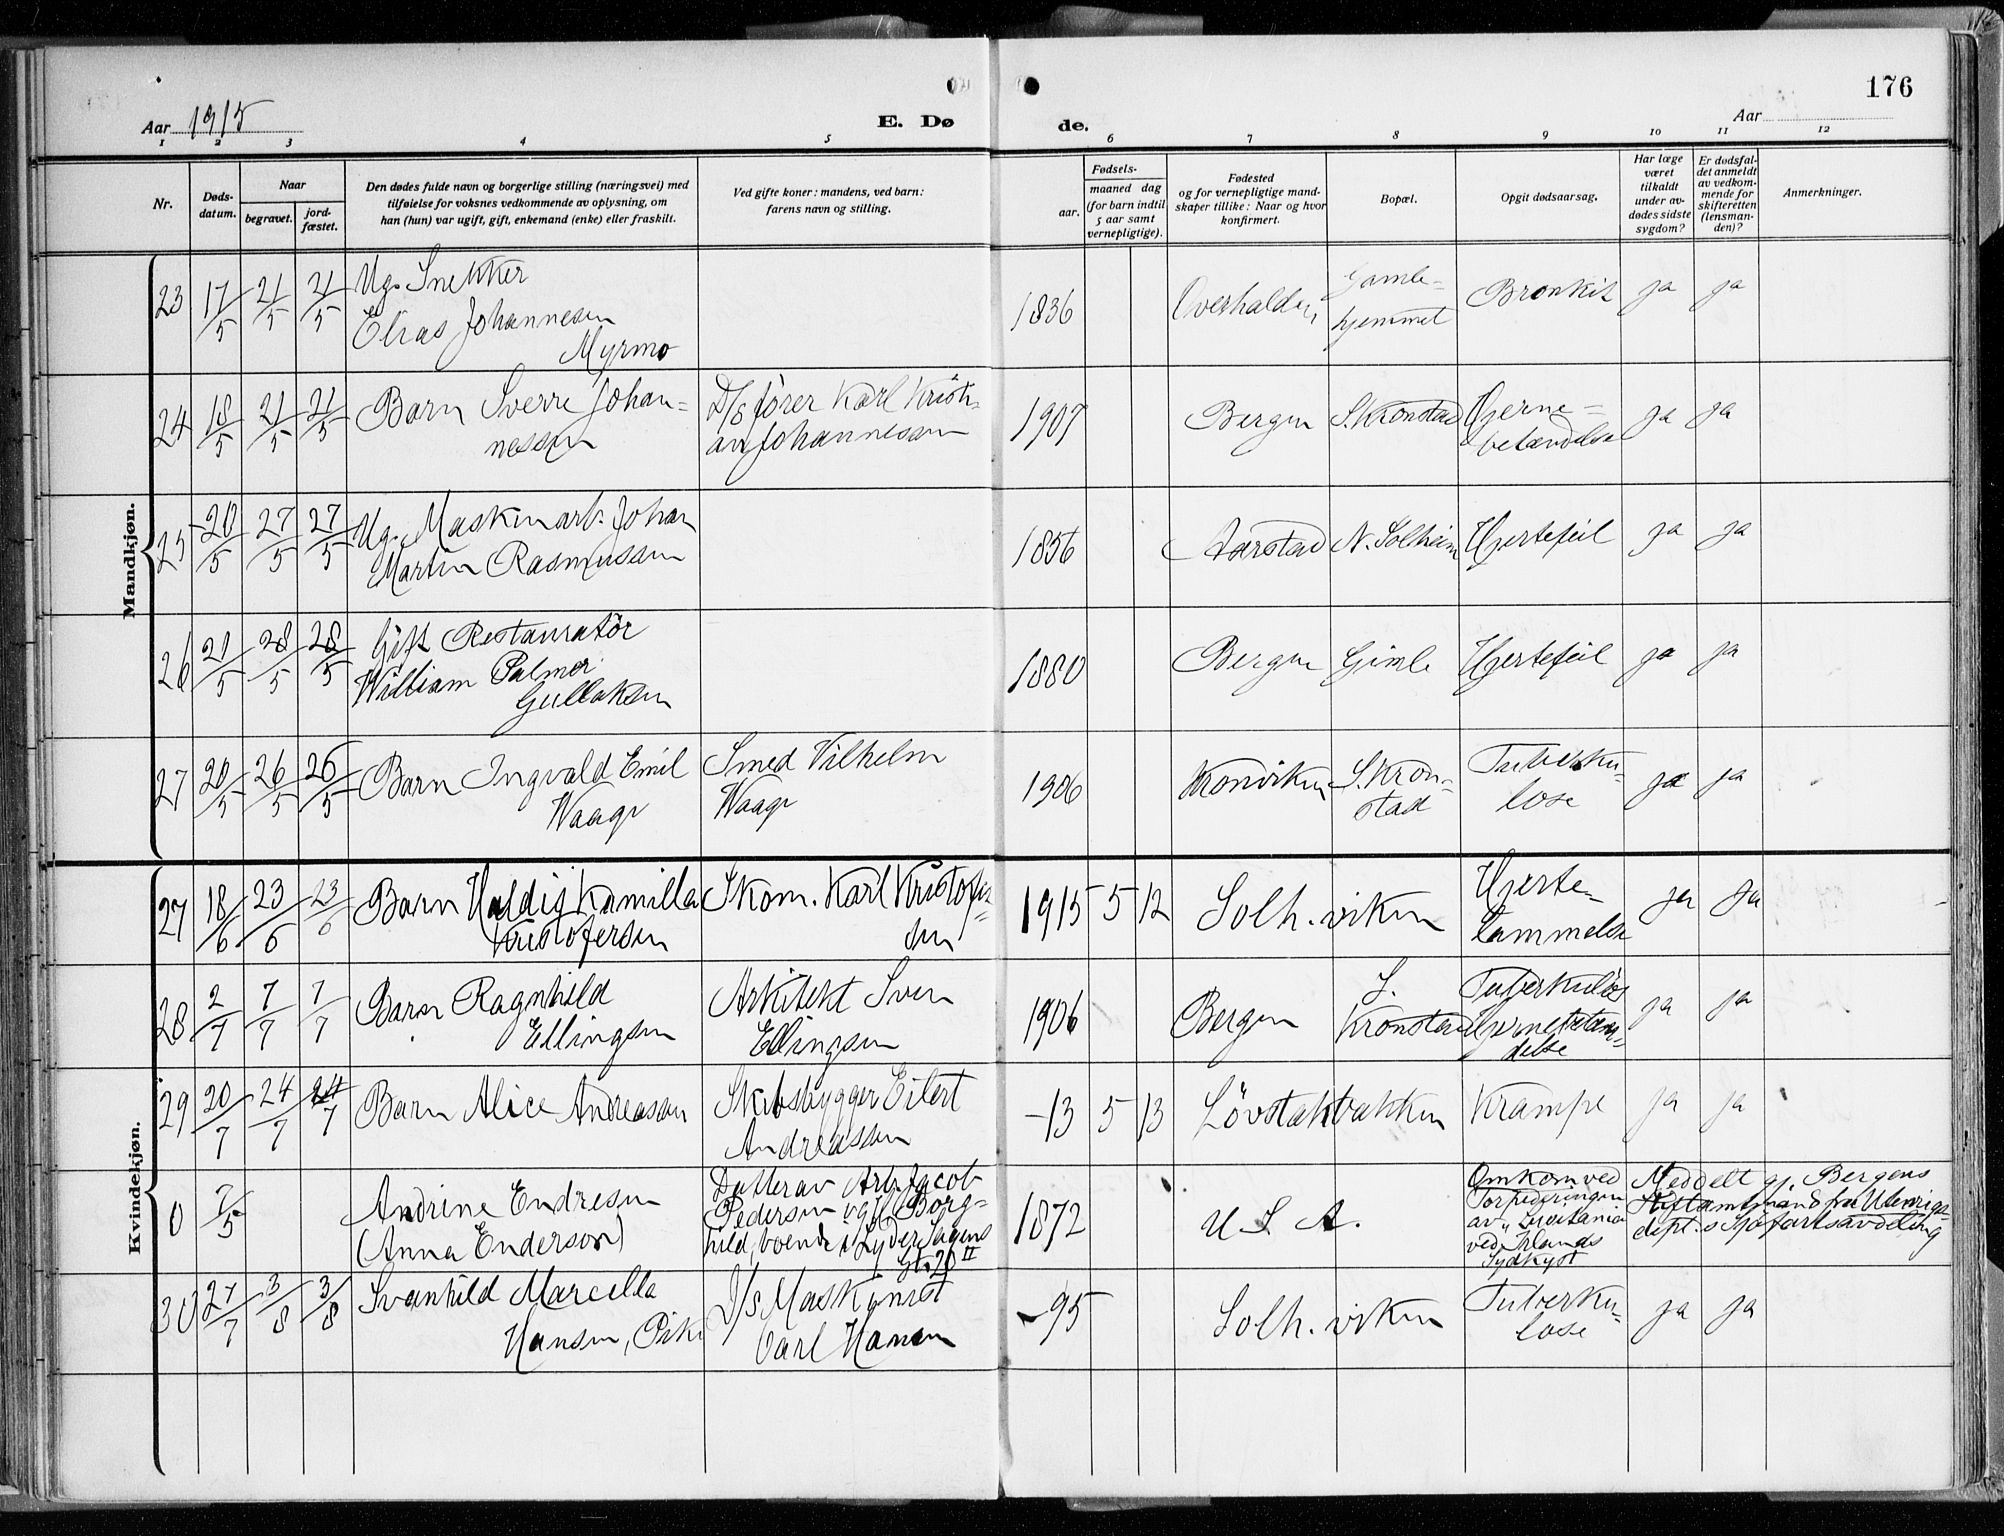 176
Aar 1915
E. Dø
de.
Aar
1 2 3 4 5 6 7 8 9 10 11 12
Nr.
Døds-
datum.
Naar
begravet.
jord-
fæstet.
Den dødes fulde navn og borgerlige stilling (næringsvei) med
tilføielse for voksnes vedkommende av oplysning, om
han (hun) var ugift, gift, enkemand (enke) eller fraskilt.
Ved gifte koner: mandens, ved barn:
farens navn og stilling.
Fødsels-
aar.
maaned dag
(for barn indtil
5 aar samt
vernepligtige).
Fødested
og for vernepligtige mand-
skaper tillike: Naar og hvor
konfirmert.
Bopæl.
Opgit dødsaarsag.
Har læge
været
tilkaldt
under av-
dødes sidste
sygdom?
Er dødsfal-
det anmeldt
av vedkom-
mende for
skifteretten
(lensman-
den)?
Anmerkninger.
Mandkjøn.
23 17/5 21/5 21/5
Ug. Snekker
Elias Johannesen
Myrmo
1836
Overhalden
Gamle-
hjemmet
Bronkit
ja ja
24 18/5 21/5 21/5
Barn Sverre Johan-
nessen
D/S fører Karl Kristi-
an Johannessen
1907
Bergen
S. Kronstad
Hjerne-
betændelse
ja ja
25 20/5 27/5 27/5
Ug. Maskinarb. Johan
Martin Rasmussen
1856
Aarstad
N. Solheim
Hjertefeil
ja ja
26 21/5 28/5 28/5
Gift Restauratør
William Palmer
Gullaksen
1880
Bergen
Gimle
Hjertefeil
ja ja
27 20/5 26/5 26/5
Barn Ingvald Emil
Waage
Smed Vilhelm
Waage
1906
Kronviken
S. Kron-
stad
Tuberku-
lose
ja ja
Kvindekjøn.
27 18/6 23/6 23/6
Barn Haldis Kamilla
Kristofersen
Skom. Karl Kristofer-
sen
1915 5 12
Solh.viken
Hjerte-
lammelse
ja ja
28 2/7 7/7 7/7
Barn Ragnhild
Ellingsen
Arkitekt Sven
Ellingsen
1906
Bergen
S.
Kronstad
Tuberkuløs
Hjernebetæn-
delse
ja ja
29 20/7 24/7 24/7
Barn Alice Andreassen
Skibsbygger Eilert
Andreassen
-13 5 13
Løvstakbakken
Krampe
ja ja
0 7/5
Andrine Endresen
(Anna Enderson)
Datter av Arb. Jacob
Pedersen og H. Borg-
hild, boende i Lyder Sagens
gt. 20 II
1872
U S A.
Omkom ved
Torpederingen
av "Lusitania"
ved Irlands
Sydkyst
Meddelt gj. Bergens
Stiftamtmand fra Utenrigs-
dept.s Sjøfartsavdeling
30 27/7 3/8 3/8
Svanhild Marcella
Hansen, Pike
D/S Maskinist
Carl Hansen
-95
Solh.viken
Tuberku-
lose
ja ja